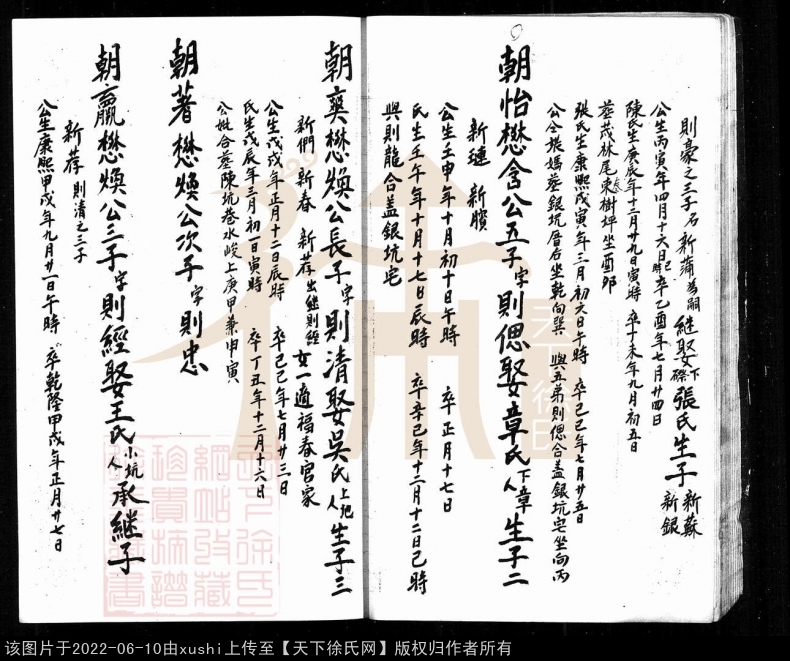 則豪之三子名新蒲為嗣 繼娶下磜張氏生子新蘇 新銀
公生丙寅年四月十六日 時 卒乙酉年七月廿四日
陳氏生庚辰年十二月廿九日寅時 卒丁未年九月初五日
葬茂林尾東樹坪坐酉卯
張氏生康熙戊寅年三月初六日午時 卒己巳年七月廿五日
公仝張媽葬銀坑厝右坐乾向巽 與五弟則偲合葢銀坑宅坐向丙
朝怡懋含公五子字則偲娶章氏下章人生子二
新璉 新臏
公生壬申年十月初十日午時 卒正月十七日
氏生壬午年十月十七日辰時 卒辛己年十二月十二日己時
與則龍合葢銀坑宅
朝奕懋煥公長子字則清娶吳氏上地人生子三
新們 新春 新荐出繼則經 女一適福春宮家
公生戊戌年正月十二日辰時 卒己巳年七月廿三日
氏生戊辰年三月初一日寅時 卒丁丑年十二月十六日
公妣合葢陳坑巷水峻上庚甲兼申寅
朝著懋煥公次子字則忠
朝贏懋煥公三子字則經娶王氏小坑人承繼子
新荐 則清之三子
公生康熙甲戌年九月廿一日午時 卒乾隆甲戌年正月廿七日
天下徐氏
该图片于2022-06-10由xushi上传至【天下徐氏网】版权归作者所有